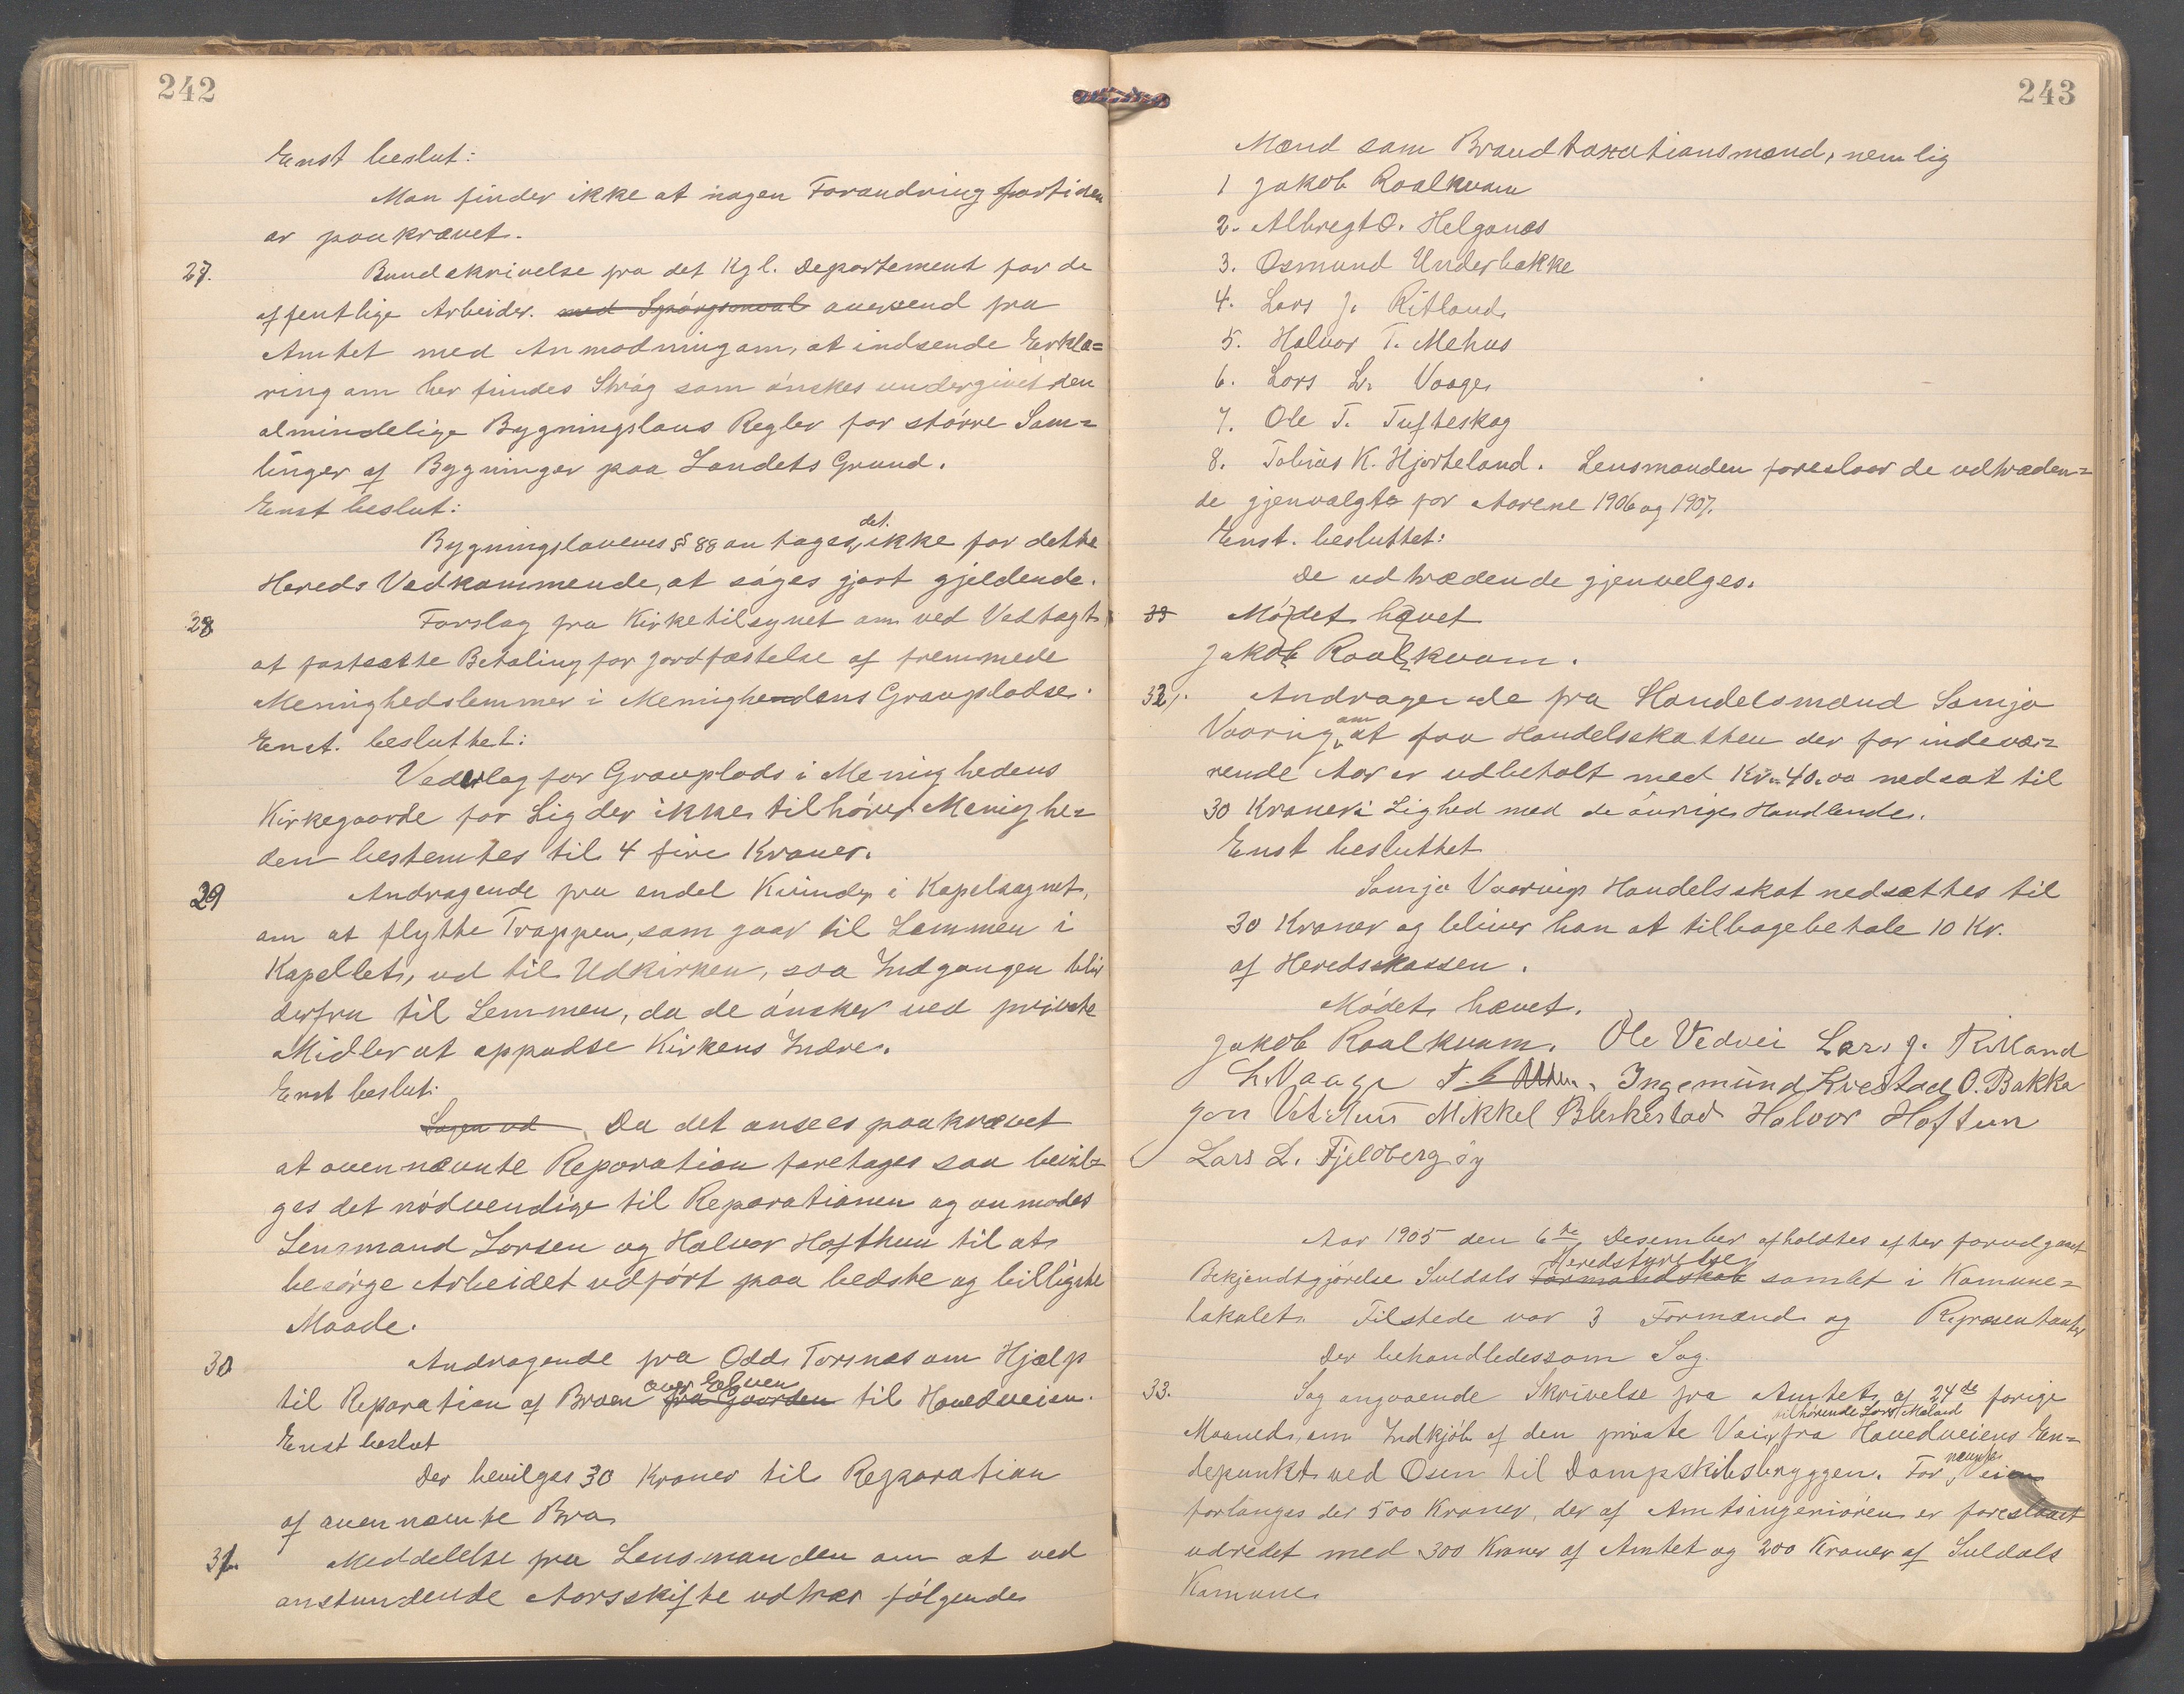 242
Enst beslut:
Man finder ikke at nogen Forandring fortiden
er paakrævet.
27. Rundskrivelse fra det Kgl. Departement for de
offentlige Arbeider. med Spørgsmaal oversend fra
Amtet med Anmodning om, at indsende Erklæ=
ring om her findes Strøg som ønskes undergivet den
almindelige Bygningslovs Regler for større Sam=
linger af Bygninger paa Landets Grund.
Enst beslut:
det
Bygningslovens § 88 antages ikke for dette
Hereds Vedkommende, at søges gjort gjeldende.
28 Forslag fra Kirketilsynet om ved Vedtægt
at fastsætte Betaling for jordfæstelse af fremmede
Menighedslemmer i Menighedens Gravpladse.
Enst. besluttet:
Vederlag for Gravplads i Menighedens
Kirkegaarde for Lig der ikke tilhører Menighe=
den bestemtes til 4 fire Kroner.
29 Andragende fra endel Kvinder i Kapelsognet,
om at flytte Trappen, som gaar til Lemmen i
Kapellet, ud til Udkirken, saa Indgangen blir
derfra til Lemmen, da de ønsker ved private
Midler at oppudse Kirkens Indre.
Enst beslut:
Sagen ud Da det ansees paakrævet
at ovennævnte Reparation foretages saa bevil=
ges det nødvendige til Reparationen og anmodes
Lensmand Larsen og Halvor Hofthun til at
besørge Arbeidet udført paa bedste og billigste
Maade.
30 Andragende fra Odd Torsnæs om Hjælp
over Eelven
til Reparation af Broen fra Gaarden til Hovedveien.
Enst beslut
Der bevilges 30 Kroner til Reparation
af ovennævnte Bro
31. Meddelelse fra Lensmanden om at ved
anstundende Aarsskifte udtræ følgende
243
Mænd som Brandtaxationsmænd, nemlig
1 Jakob Roalkvam
2. Albregt O. Helganæs
3. Osmund Underbakke
4. Lars J. Ritland
5. Halvor T. Mehus
6. Lars L. Vaage
7. Ole T. Tufteskog
8. Tobias K. Hjorteland. Lensmanden foreslaar de udtræden=
de gjenvalgte for Aarene 1906 og 1907.
Enst. besluttet:
De udtrædende gjenvelges.
Mødet hævet
Jakob Roalkvam.
32. Andragende fra Handelsmand Samja
om
Vaaring at faa Handelskatten der for indevæ=
rende Aar er udbetalt med Kr. 40.00 nedsat til
30 Kroner i Lighed med de øvrige Handlende.
Enst besluttet
Samja Vaarings Handelsskat nedsættes til
30 Kroner og bliver han at tilbagebetale 10 Kr.
af Heredskassen.
Mødet hævet.
Jakob Roalkvam. Ole Vedvei Lars J. Ritland
L. Vaage Ingemund Kvestad O. Bakka
Jon Mikkel Bleskestad Halvor Hoftun
Lars L. Fjeldbergøy
Aar 1905 den 6te Desember afholdtes efter forudgaaet
Heredstyrelse
Bekjendtgjørelse Suldals Formandskab samlet i Komune=
lokalet. Tilstede var 3 Formænd og Repræsentanter
Der behandledes som Sag.
33. Sag angaaende Skrivelse fra Amtet af 24de forige
tilhørende Lars Mæland
Maaned, om Indkjøb af den private Vei fra Hovedveiens En=
nævnte
depunkt ved Osen til Dampskibsbryggen. For Veien
forlanges der 500 Kroner, der af Amtsingeniøren er foreslaaet
udredet med 300 Kroner af Amtet og 200 Kroner af Suldals
Komune